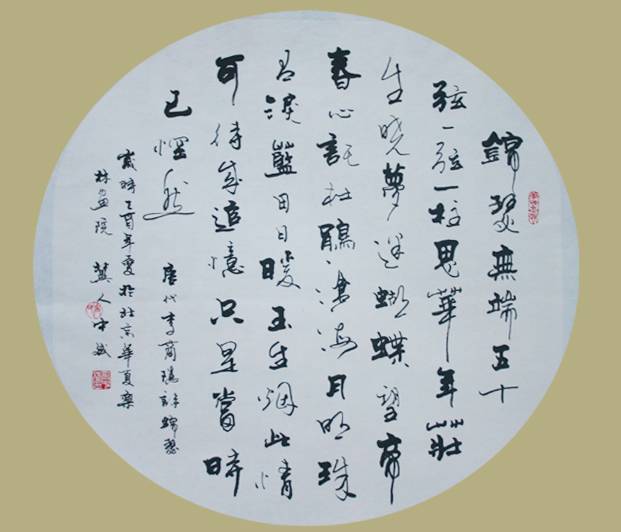 錦瑟無端五十
弦一弦一柱思華年莊
生曉夢迷蝴蝶望帝
春心託杜鵑滄海月明珠
有淚藍田日暖玉生烟此情
可待成追憶只是當時
已惘然
唐代李商隱詩錦瑟
歲時乙酉年夏於北京華夏翰
林畫院 冀人